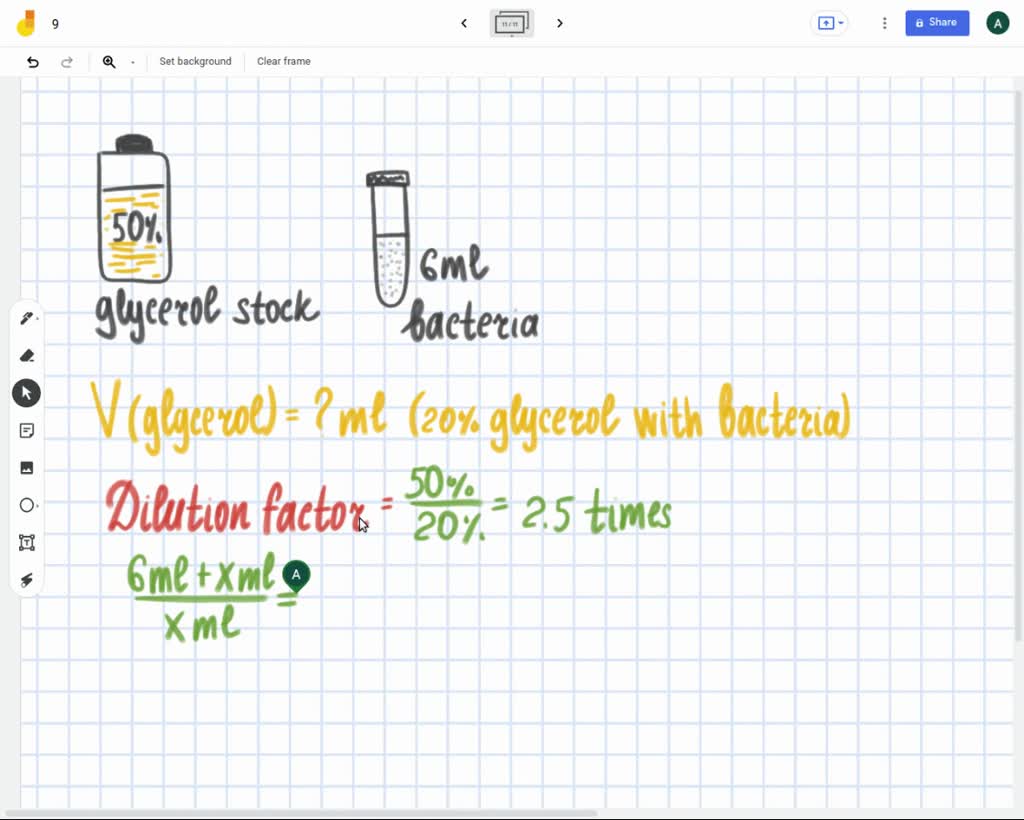 9
11 / 11
Share
A
Set background
Clear frame
50%
glycerol stock
6ml
bacteria
V(glycerol) = ? ml (20% glycerol with bacteria)
Dilution factor = 50% / 20% = 2.5 times
6ml + x ml
A
=
x ml